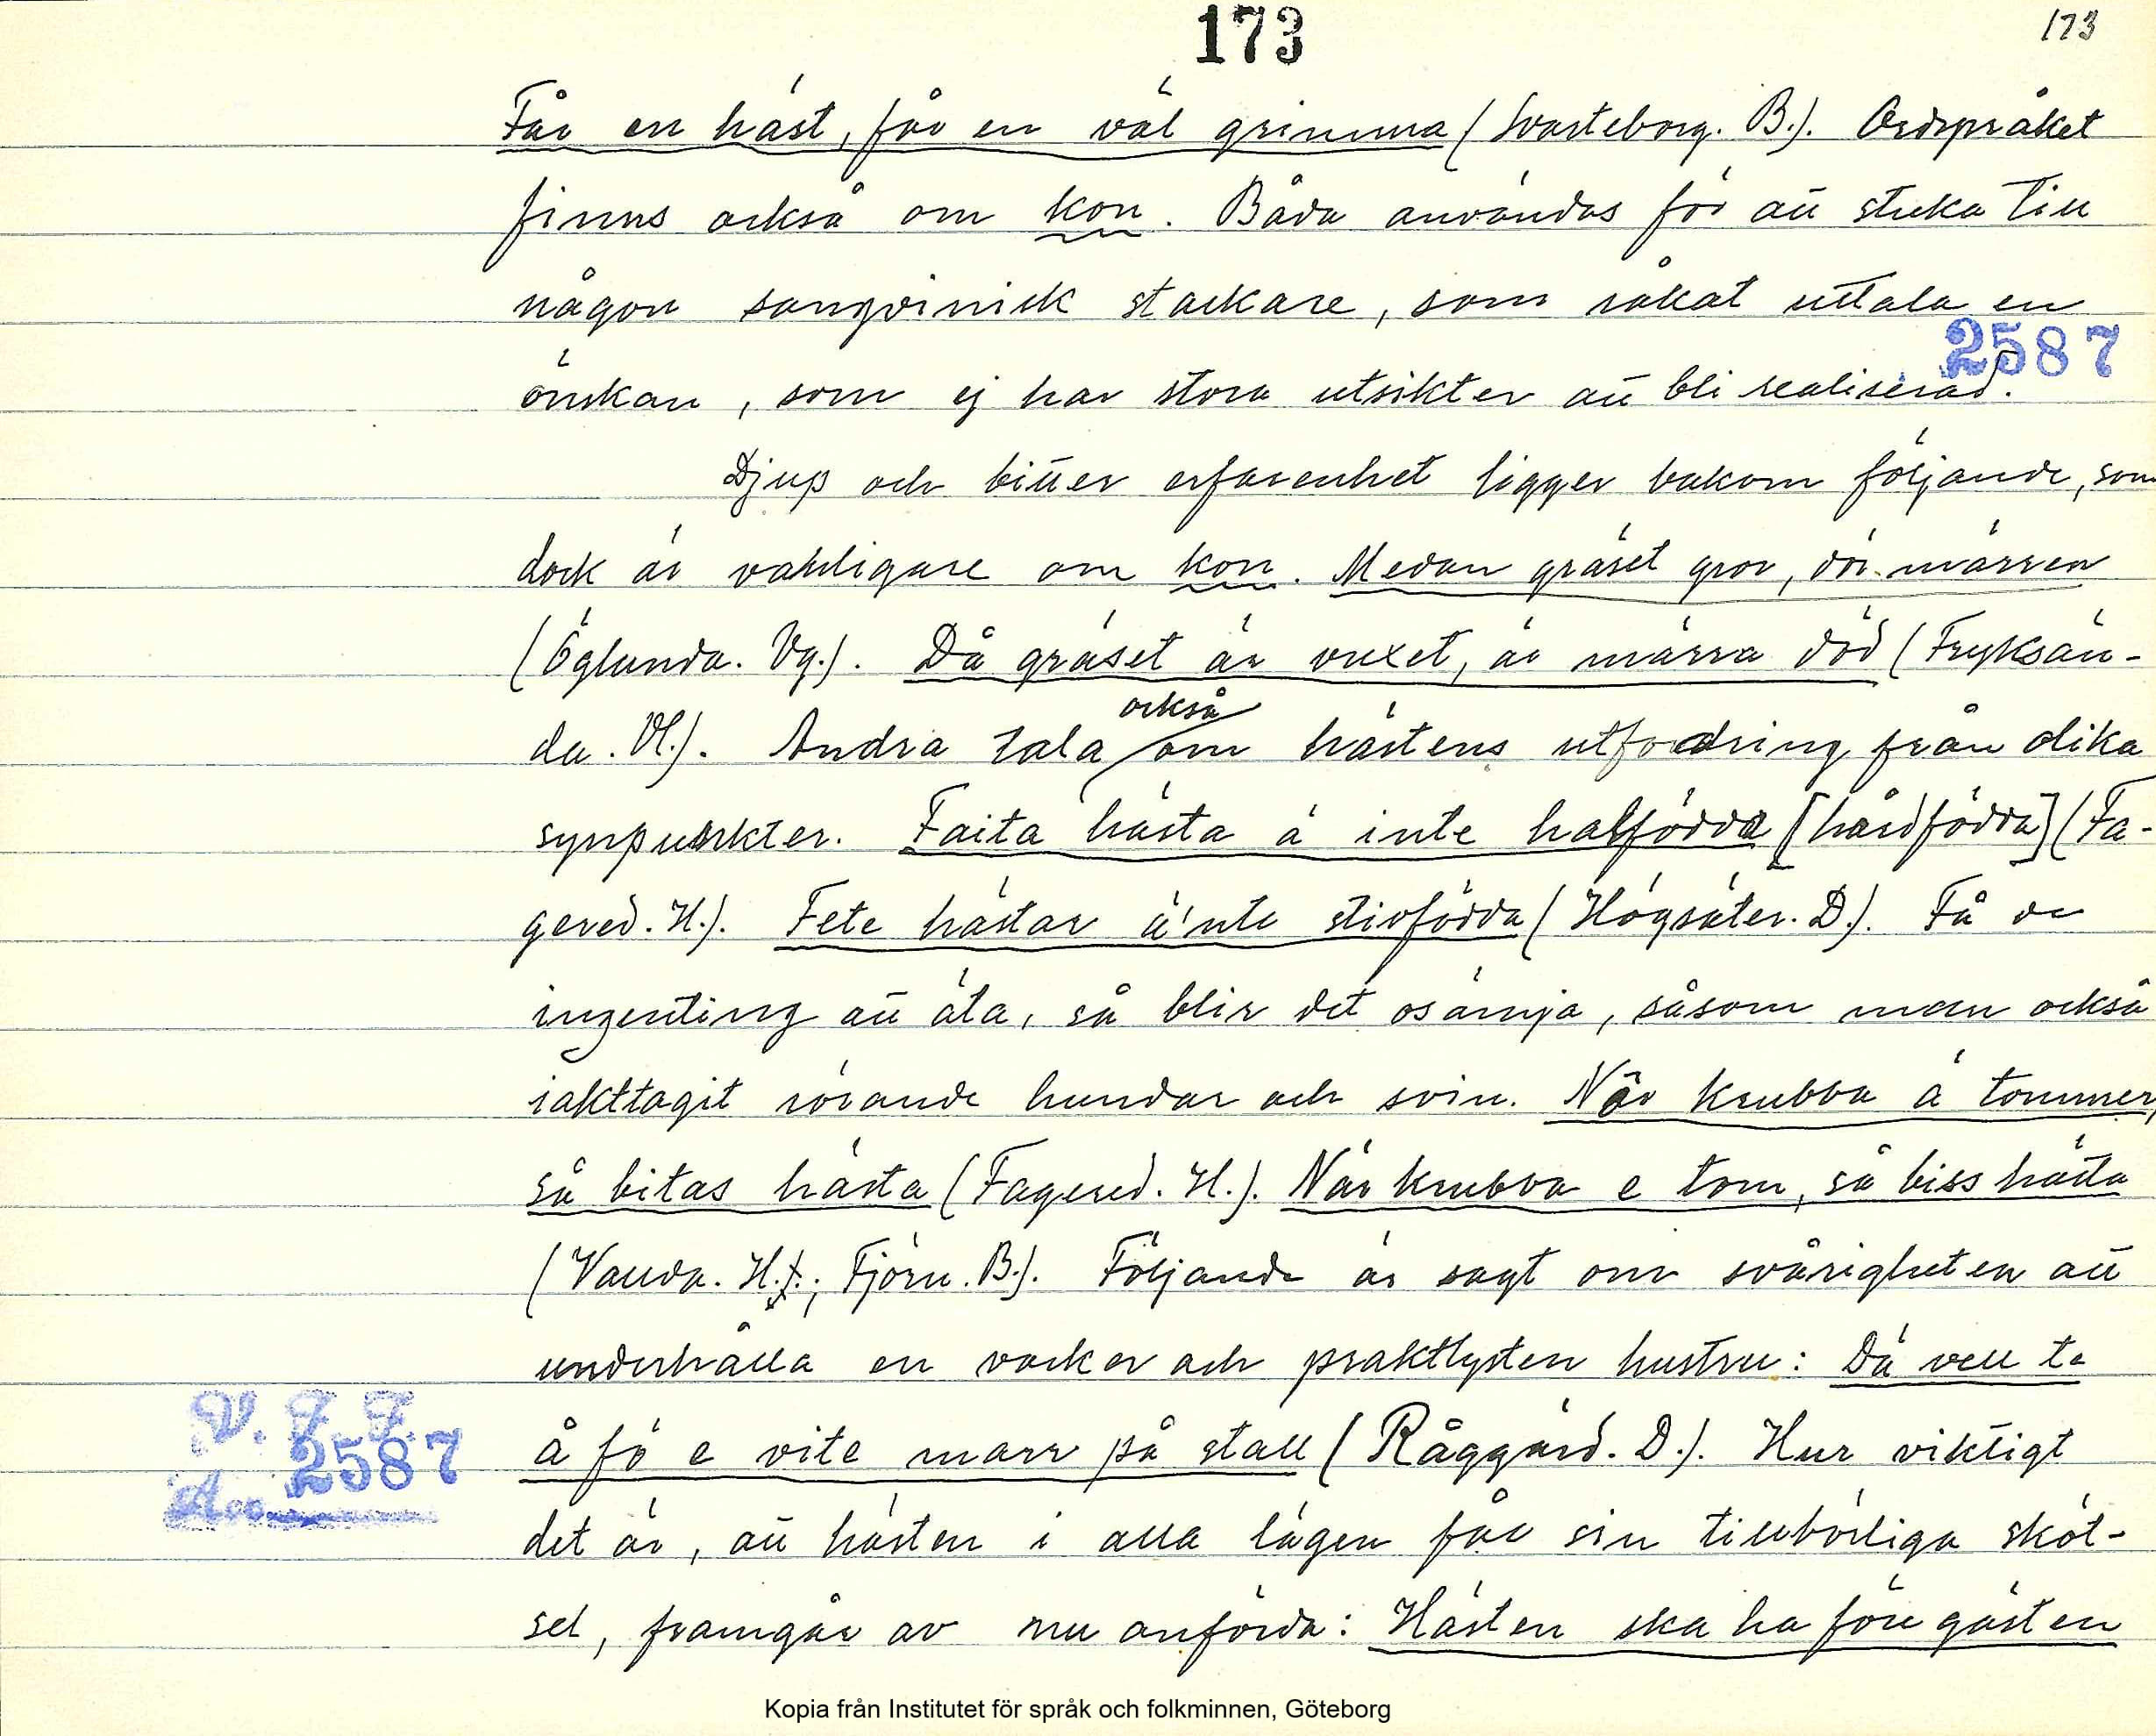 173
173
Får en häst, får en väl grimma (Svarteborg. B.). Ordspråket
finns också om kon. Båda användas för att sticka till
någon sangvinisk stackare, som råkat uttala en
2587
önskan, som ej har stora utsikter att bli realiserad.
Djup och bitter erfarenhet ligger bakom följande, som
dock är vanligare om kon. Medan gräset gror, dör märren
(Öglunda. Vg.). Då gräset är vuxet, är märra död (Fryksän-
också
da. Vl.). Andra tala om hästens utfodring från olika
synpunkter. Faita hästa ä inte halfödda [hårdfödda] (Fa-
gered. H.). Fete hästar ä'nte stivfödda (Högsäter. D.). Få de
ingenting att äta, så blir det osämja, såsom man också
iakttagit rörande hundar och svin. När krubba ä tommer,
så bitas hästa (Fagered. H.). När krubba e tom, så biss hästa
(Vanda. H.; Tjörn. B.). Följande är sagt om svårigheten att
underhålla en vacker och praktlysten hustru: Dä vell te
å fö e vite marr på stall (Råggärd. D.). Hur viktigt
V. F. F.
2587
Acc.
det är, att hästen i alla lägen får sin tillbörliga sköt-
sel, framgår av nu anförda: Hästen ska ha före gästen
Kopia från Institutet för språk och folkminnen, Göteborg